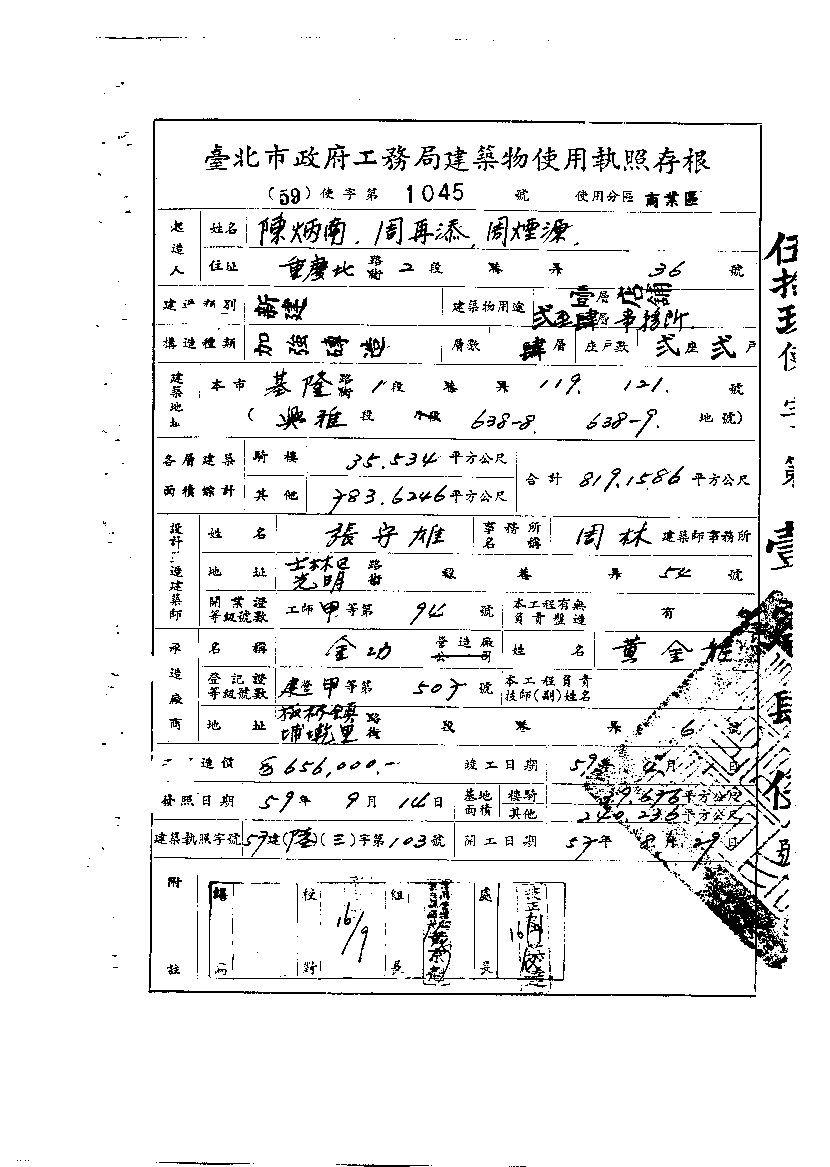 臺北市政府工務局建築物使用執照存根
(59)使字第 1045 號 使用分區 商業區
起造人 姓名 陳炳南、周再添、周煙源
住址 重慶北路街 2 段 巷 弄 36 號
建造類別 新建 建築物用途 壹層店鋪 弍至肆層事務所.
構造種類 加強磚造 層數 肆層 座戶數 弍座弍戶
建築地址 本市 基隆路街 1 段 巷 弄 119. 121. 號
(興雅段 小段 638-8. 638-9. 地號)
各層建築面積總計 騎樓 35.534 平方公尺 合計 819.1586 平方公尺
其他 783.6246 平方公尺
設計監造建築師 姓名 張守雄 事務所名稱 周林 建築師事務所
地址 士林區光明路街 段 巷 弄 54 號
開業證等級號數 工師甲等第 94 號 本工程有無負責監造 有
承造廠商 名稱 金功 營造廠公司 姓名 黃金
登記證等級號數 建登甲等第 507 號 本工程負責技師(副)姓名
地址 板橋鎮埔墘里路街 段 巷 弄 6 號
造價 656,000.- 竣工日期 59年 4月 1日
發照日期 59年 9月 14日 基地面積 騎樓 平方公尺
其他 240.236 平方公尺
建築執照字號 57建(陸)(三)字第103號 開工日期 57年 8月 29日
附註 校對 16/9 組長 處長
伍拾玖使字第壹
使
號